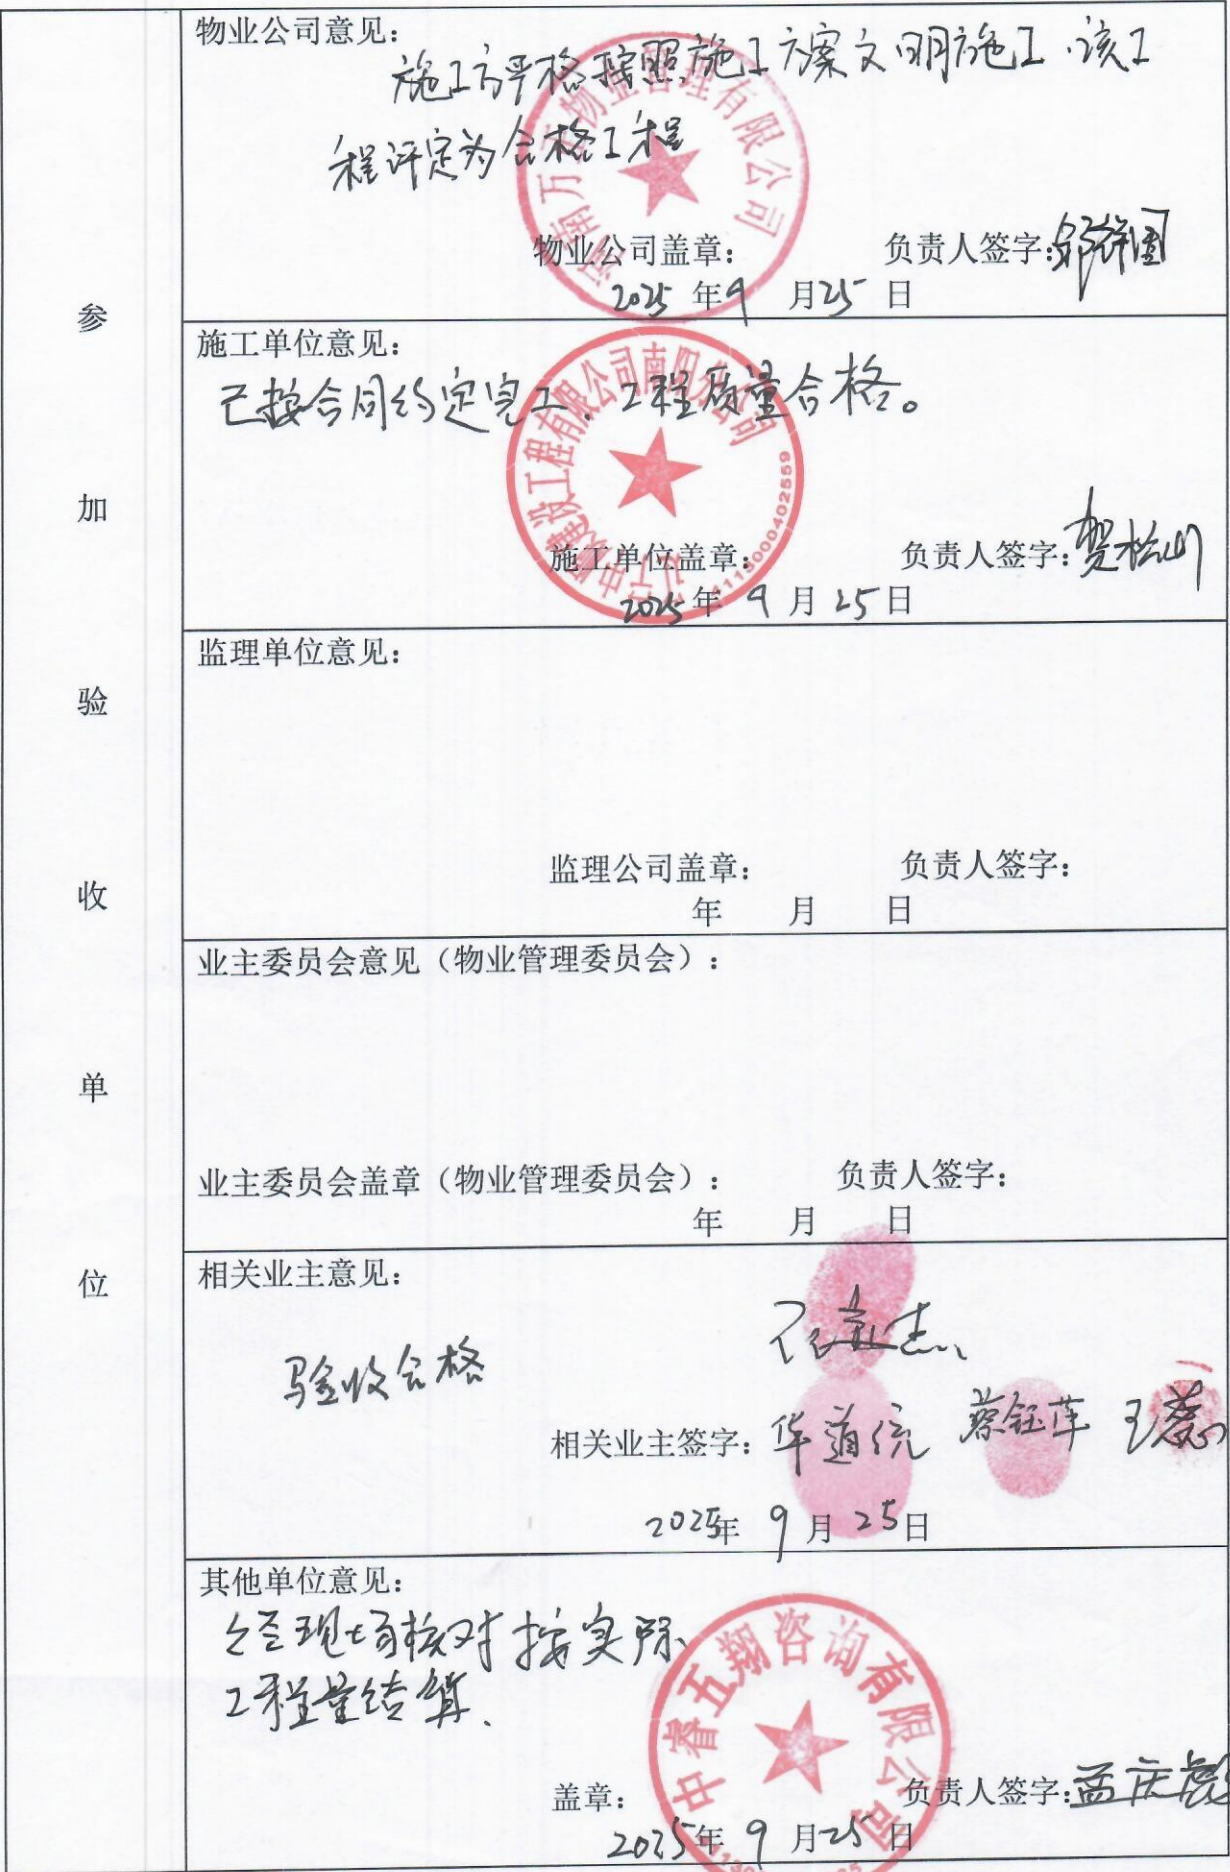 参加验收单位
物业公司意见：
施工方严格按照施工方案文明施工.该工
程评定为合格工程
物业公司盖章： 负责人签字：
2025年9月25日
施工单位意见：
已按合同约定完工，工程质量合格。
建设工程有限公司南阳分公司
4113000402559
施工单位盖章： 负责人签字：贺松山
2025年9月25日
监理单位意见：
监理公司盖章： 负责人签字：
年 月 日
业主委员会意见（物业管理委员会）：
业主委员会盖章（物业管理委员会）： 负责人签字：
年 月 日
相关业主意见：
验收合格
相关业主签字：华道统 蔡钰萍 王蕊
2025年9月25日
其他单位意见：
经现场核对按实际
工程量结算.
中睿五翔咨询有限公司
盖章： 负责人签字：孟庆彪
2025年9月25日